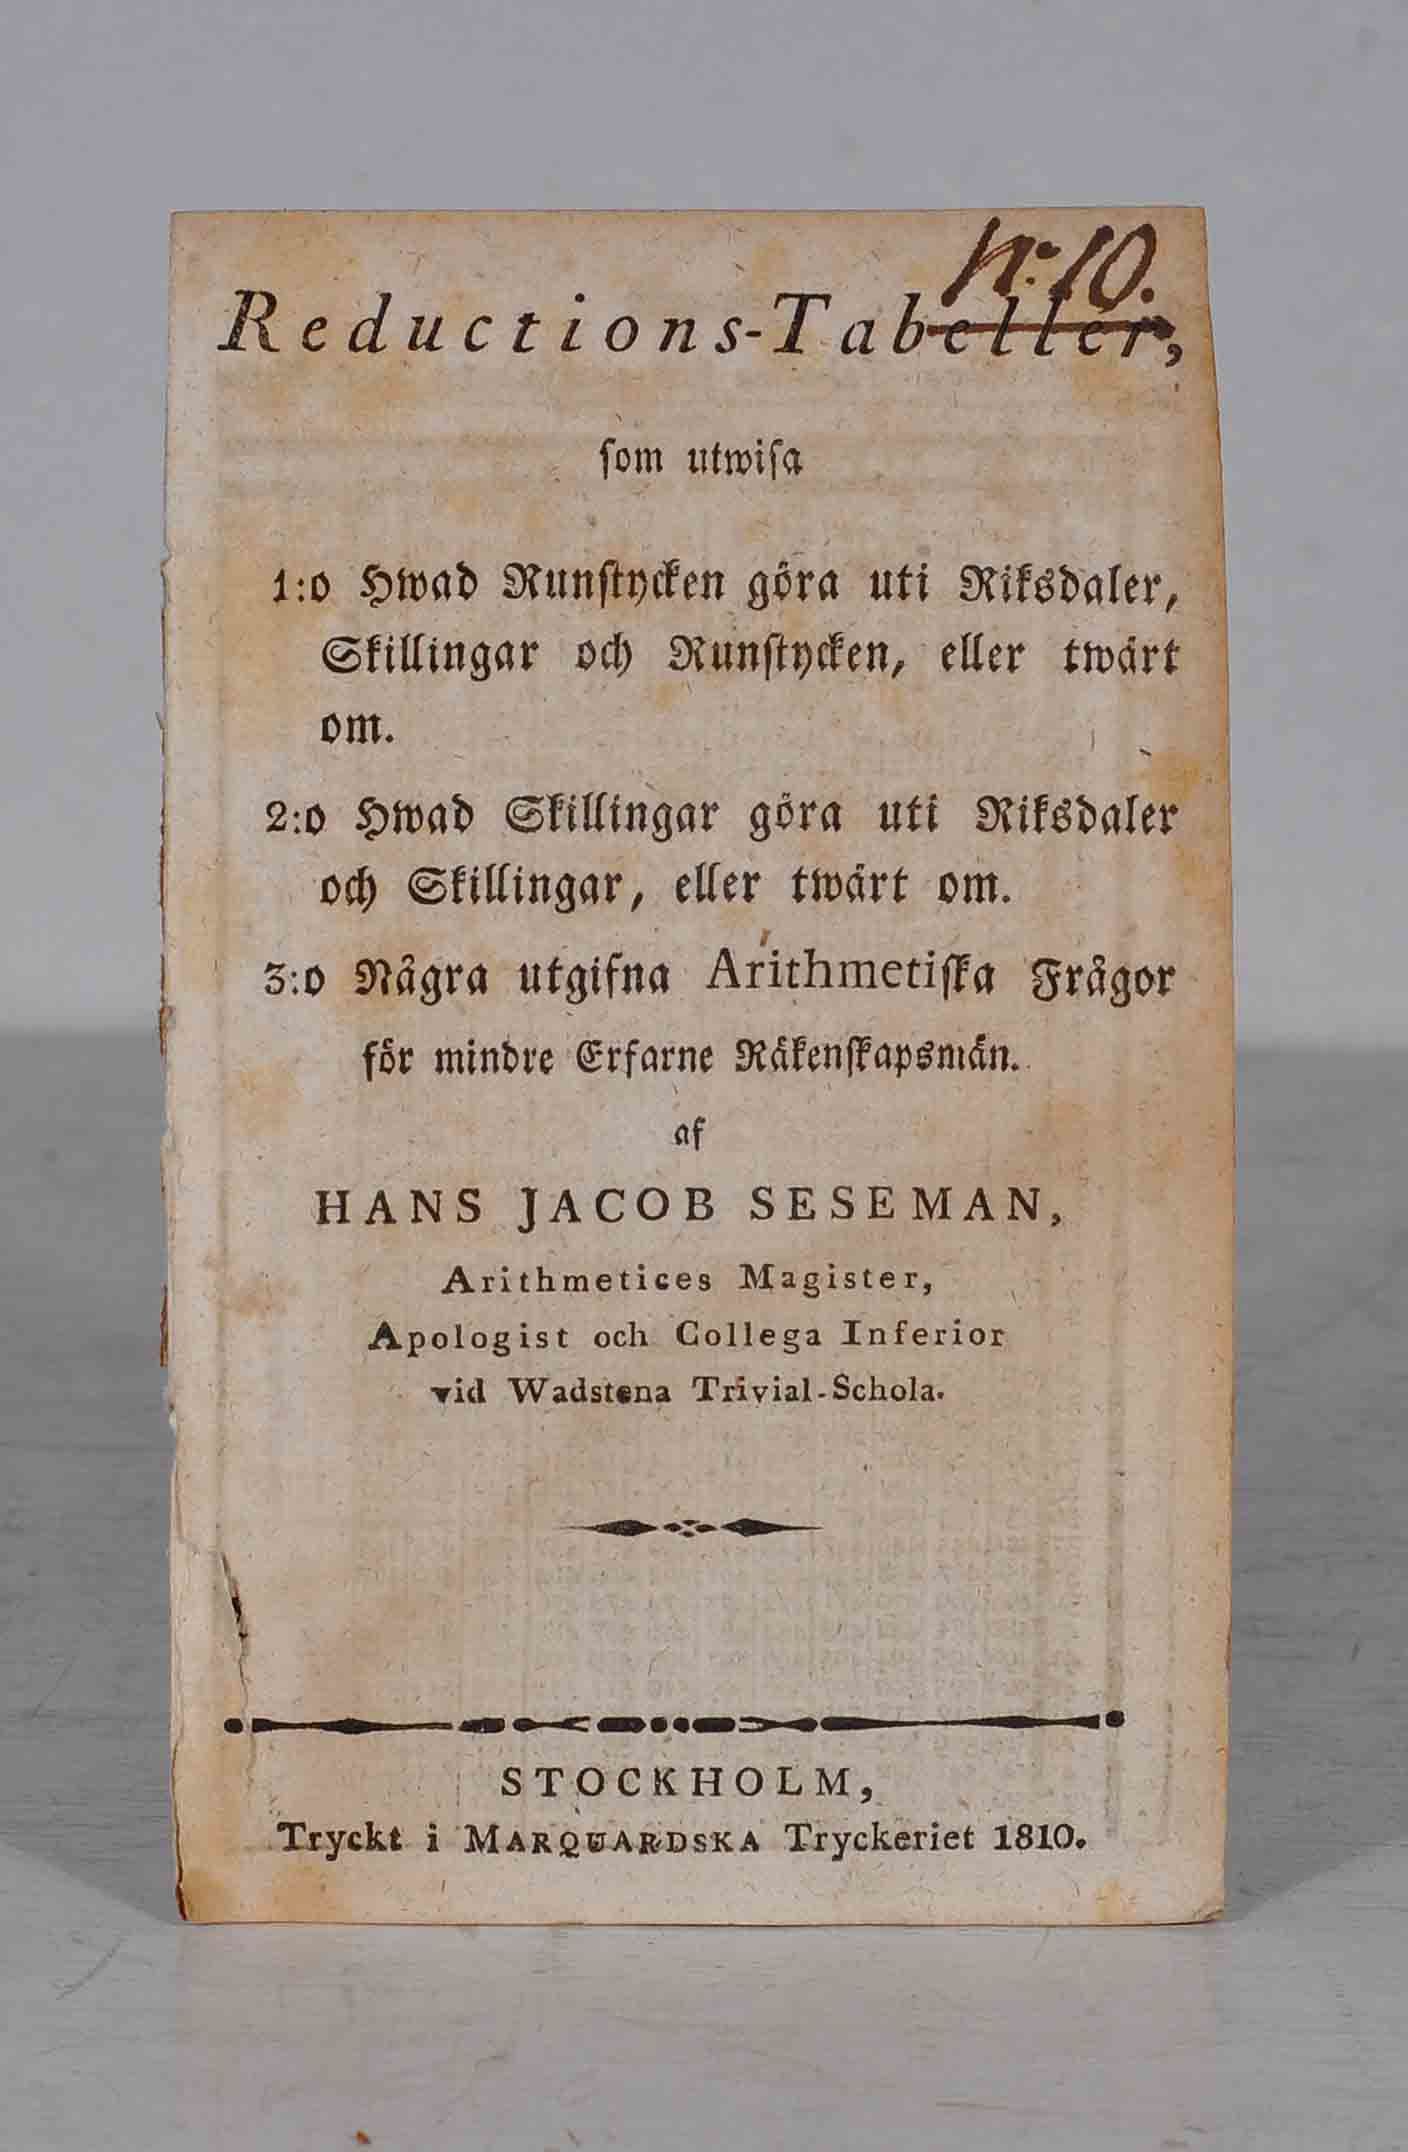 N:10.
Reductions-Tabeller,
som utwisa
1:o Hwad Runstycken göra uti Riksdaler,
Skillingar och Runstycken, eller twärt
om.
2:o Hwad Skillingar göra uti Riksdaler
och Skillingar, eller twärt om.
3:o Några utgifna Arithmetiska Frågor
för mindre Erfarne Räkenskapsmän.
af
HANS JACOB SESEMAN,
Arithmetices Magister,
Apologist och Collega Inferior
vid Wadstena Trivial-Schola.
STOCKHOLM,
Tryckt i MARQUARDSKA Tryckeriet 1810.